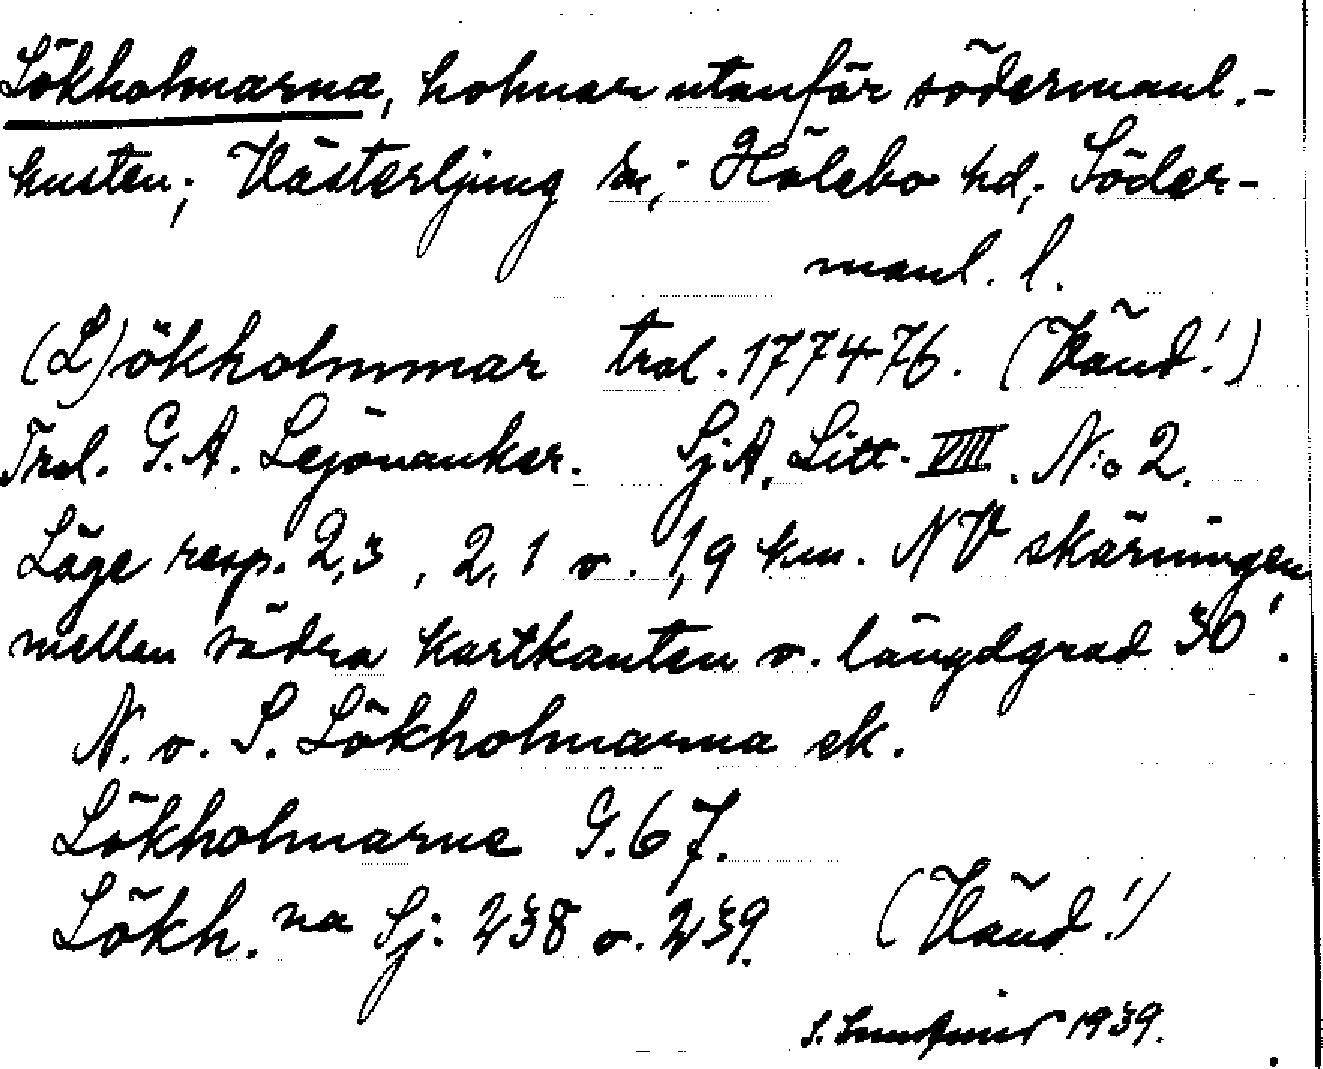 Lökholmarna, holmar utanför södermanl.-
kusten; Västerljung sn; Hölebo hd; Söder-
manl. l.
(L)ökholmmar tral. 177476. (Vänd!)
Tral. G.A. Lejonanker. SjA. Litt. VIII. N:o 2.
Läge resp. 2,3, 2,1 o. 1,9 km. NV skärningen
mellan södra kartkanten o. längdgrad 30'.
N. o. S. Lökholmarna ek.
Lökholmarne G.67.
Lökh. na Sj: 238 o. 239. (Vänd!)
S. 1939.